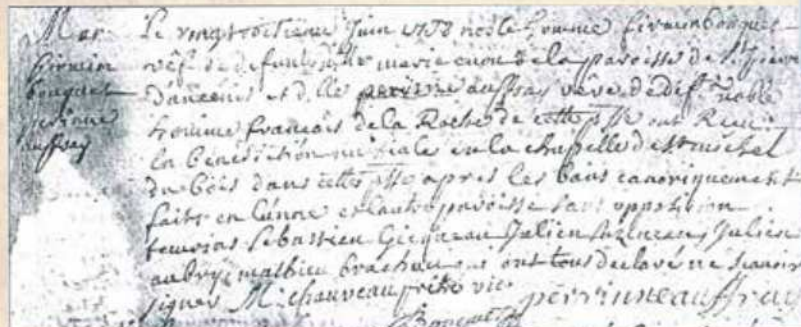 Mar
firmin
bouquet
perinne
auffray
Le vingt octieme Juin 1758 noble homme firmin bouquet
vef de defunte marie de la paroisse de St pierre
Dancenis et d.lle perinne auffray veve de def. noble
homme francois de la Roche de cette psse ont Receu
la benediction nuptiale en la chapelle de St michel
du bois dans cette psse apres les bans canoniquement
faits en l'unne et l'autre paroisse sans opposition
temoins Sebastien Julien Julien
aubry mathieu ont tous declaré ne scavoir
signer M. chauveau prêtre vic. perrinne auffray